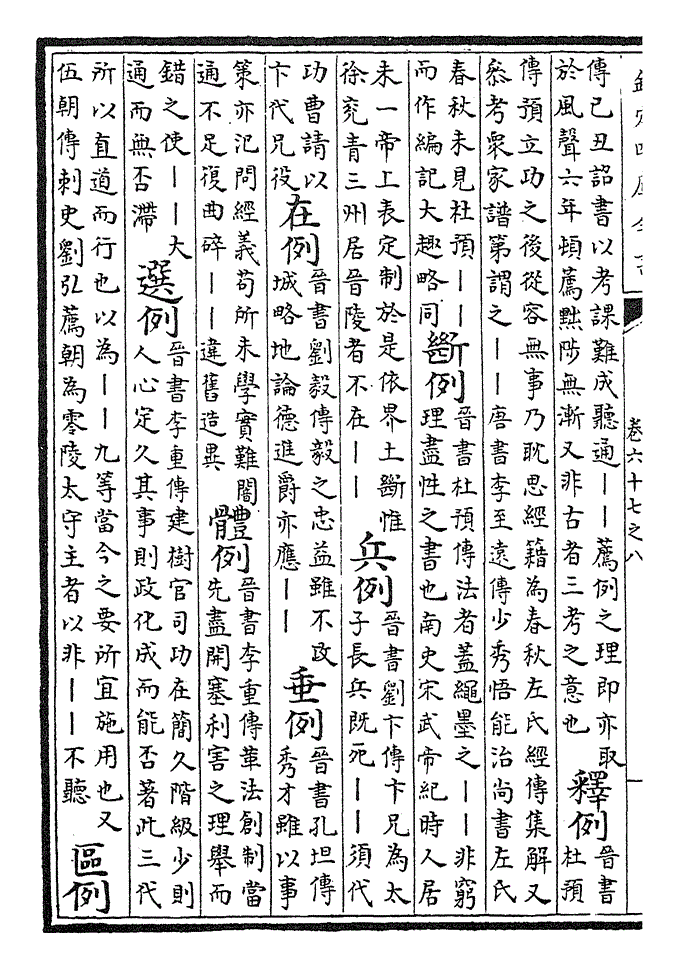 欽定四庫全書
卷六十七之八
傳己丑詔書以考課難成聽通——薦例之理即亦取
於風聲六年頓薦黜陟無漸又非古者三考之意也
釋例
晉書
杜預
傳預立功之後從容無事乃耽思經籍為春秋左氏經傳集解又
叅考衆家譜第謂之——唐書李至遠傳少秀悟能治尚書左氏
春秋未見杜預——
而作編記大趣略同
斷例
晉書杜預傳法者蓋繩墨之——非窮
理盡性之書也南史宋武帝紀時人居
未一帝上表定制於是依界土斷惟
徐兖青三州居晉陵者不在——
兵例
晉書劉卞傳卞兄為太
子長兵既死——須代
功曹請以
卞代兄役
在例
晉書劉毅傳毅之忠益雖不攻
城略地論德進爵亦應——
垂例
晉書孔坦傳
秀才雖以事
策亦汜問經義苟所未學實難闇
通不足復曲碎——違舊造異
體例
晉書李重傳革法創制當
先盡開塞利害之理舉而
錯之使——大
通而無否滯
選例
晉書李重傳建樹官司功在簡久階級少則
人心定久其事則政化成而能否著此三代
所以直道而行也以為——九等當今之要所宜施用也又
伍朝傳刺史劉弘薦朝為零陵太守主者以非——不聽
區例